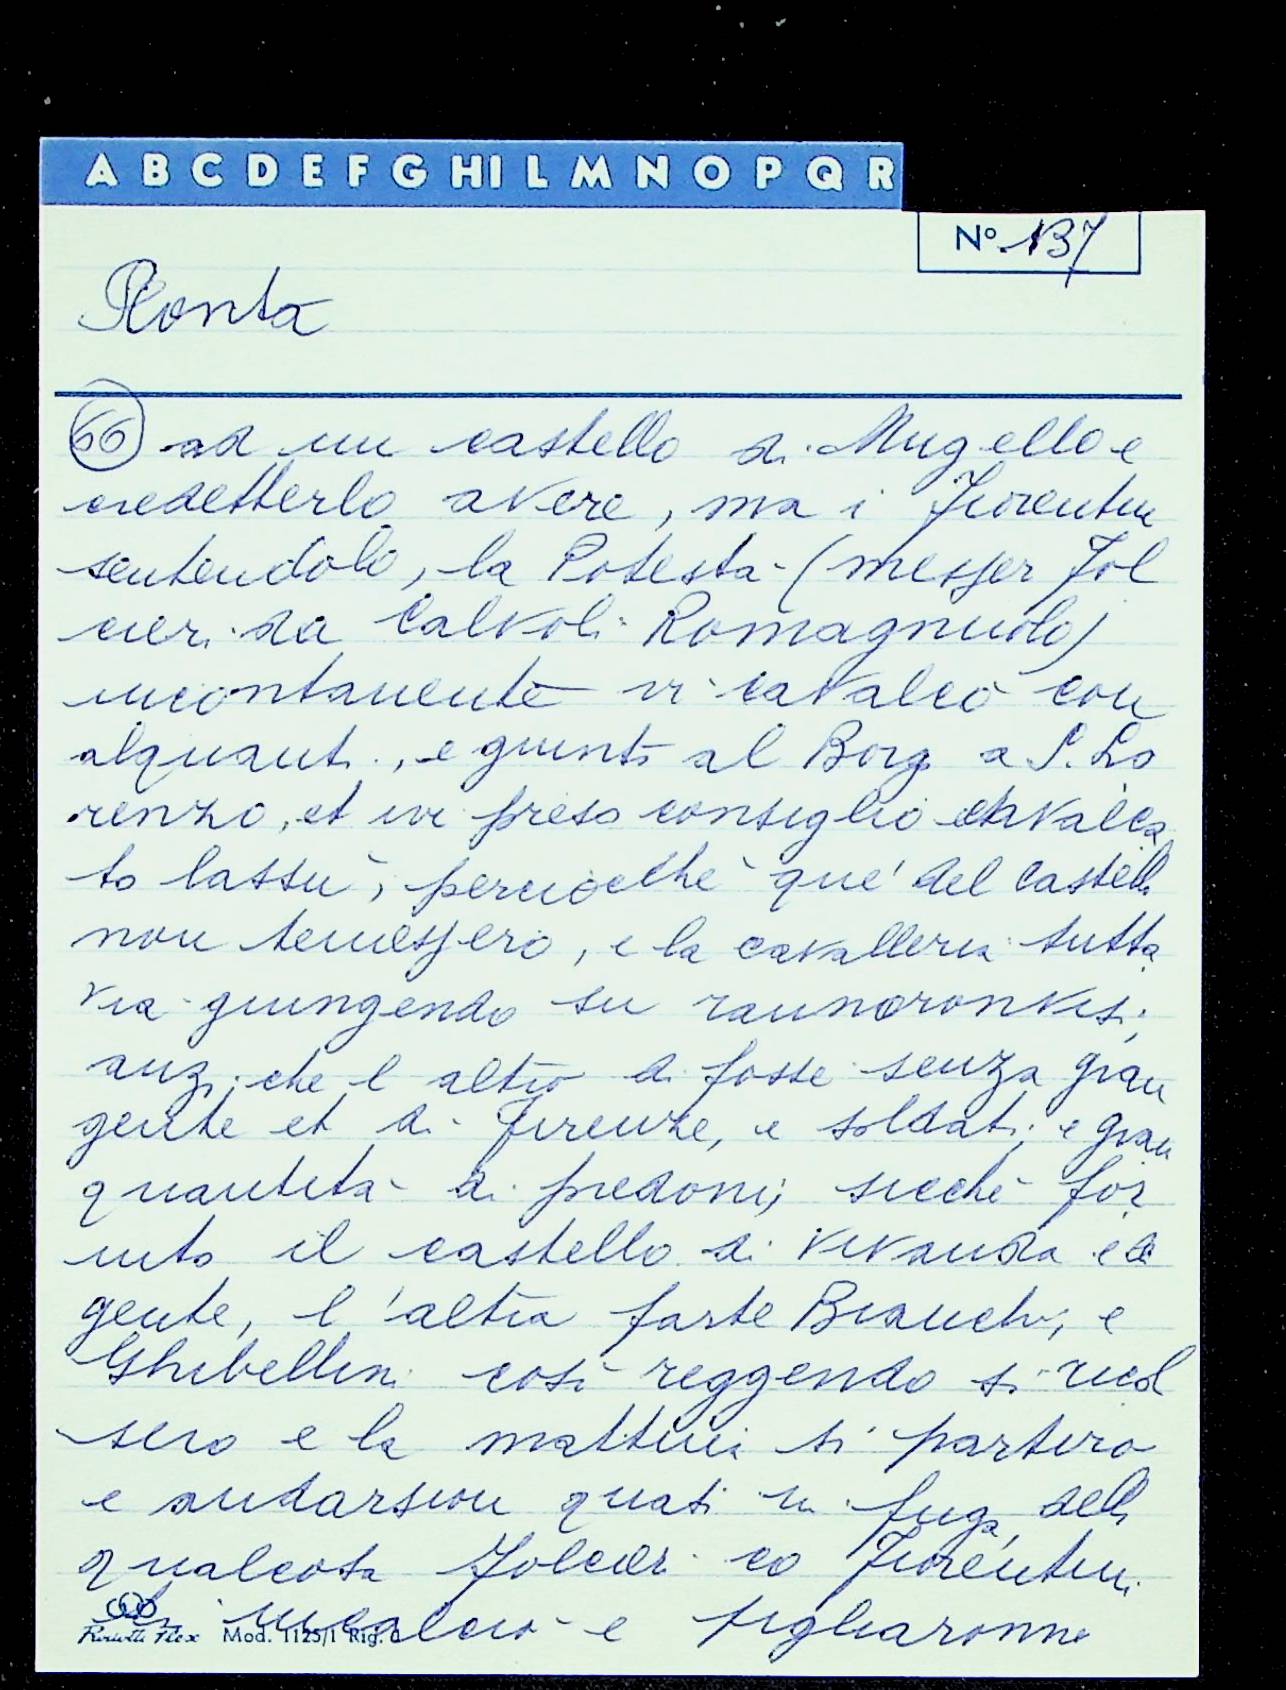 A B C D E F G HI L M N O P Q R
Nº 137
Ronta
66 ad un castello di Mugello e
credetterlo avere, ma i Fiorentini
sentendolo, la Potestà (messer Fol
cieri da Calvoli Romagnuolo)
incontanente vi cavalcò con
alquanti, e giunti al Borgo a S. Lo
renzo, et ivi preso consiglio cavalca
to lassù, perciocché que' del castello
non temessero, e la cavalleria tutta
via giungendo su raunoronvisi,
anzi che l altro dì fosse senza gran
gente et di Firenze, e soldati, e gran
quantità di pedoni, sicché for
nito il castello di vivanda e di
gente, l'altra parte Bianchi, e
Ghibellini così reggendo si ricol
sero e la mattina si partiro
e andarsion quasi in fuga, della
qualcosa Folcieri co Fiorentini
li incalciò e pigliaronne
Mod. 1125/1 Rig. C